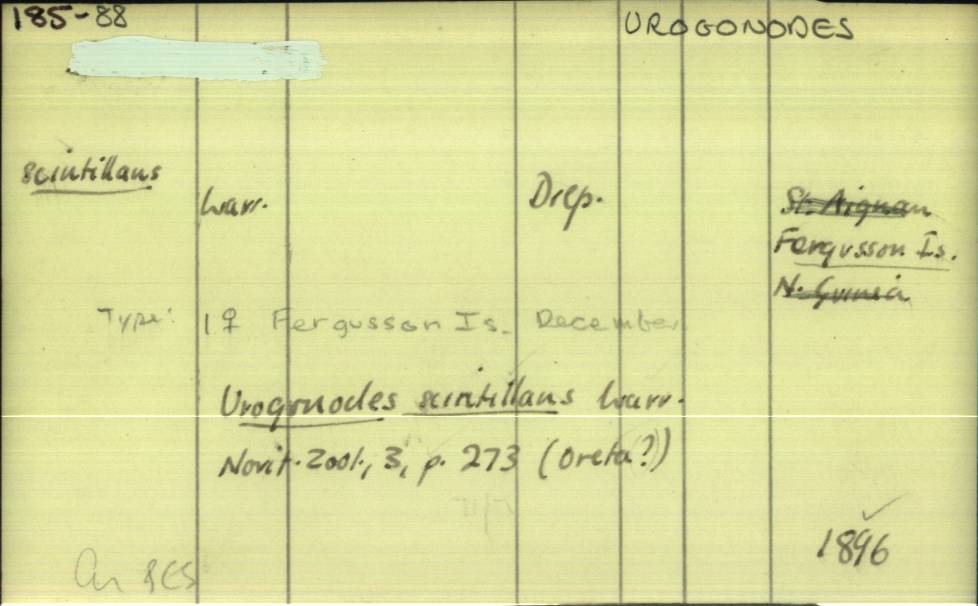 185-88
UROGONODES
scintillans
Warr. Drep. St. Aignan
Fergusson Is.
N. Guinea
Type: 1♀ Fergusson Is. December
Urogonodes scintillans Warr.
Novit. Zool., 3, p. 273 (Oreta?)
1896